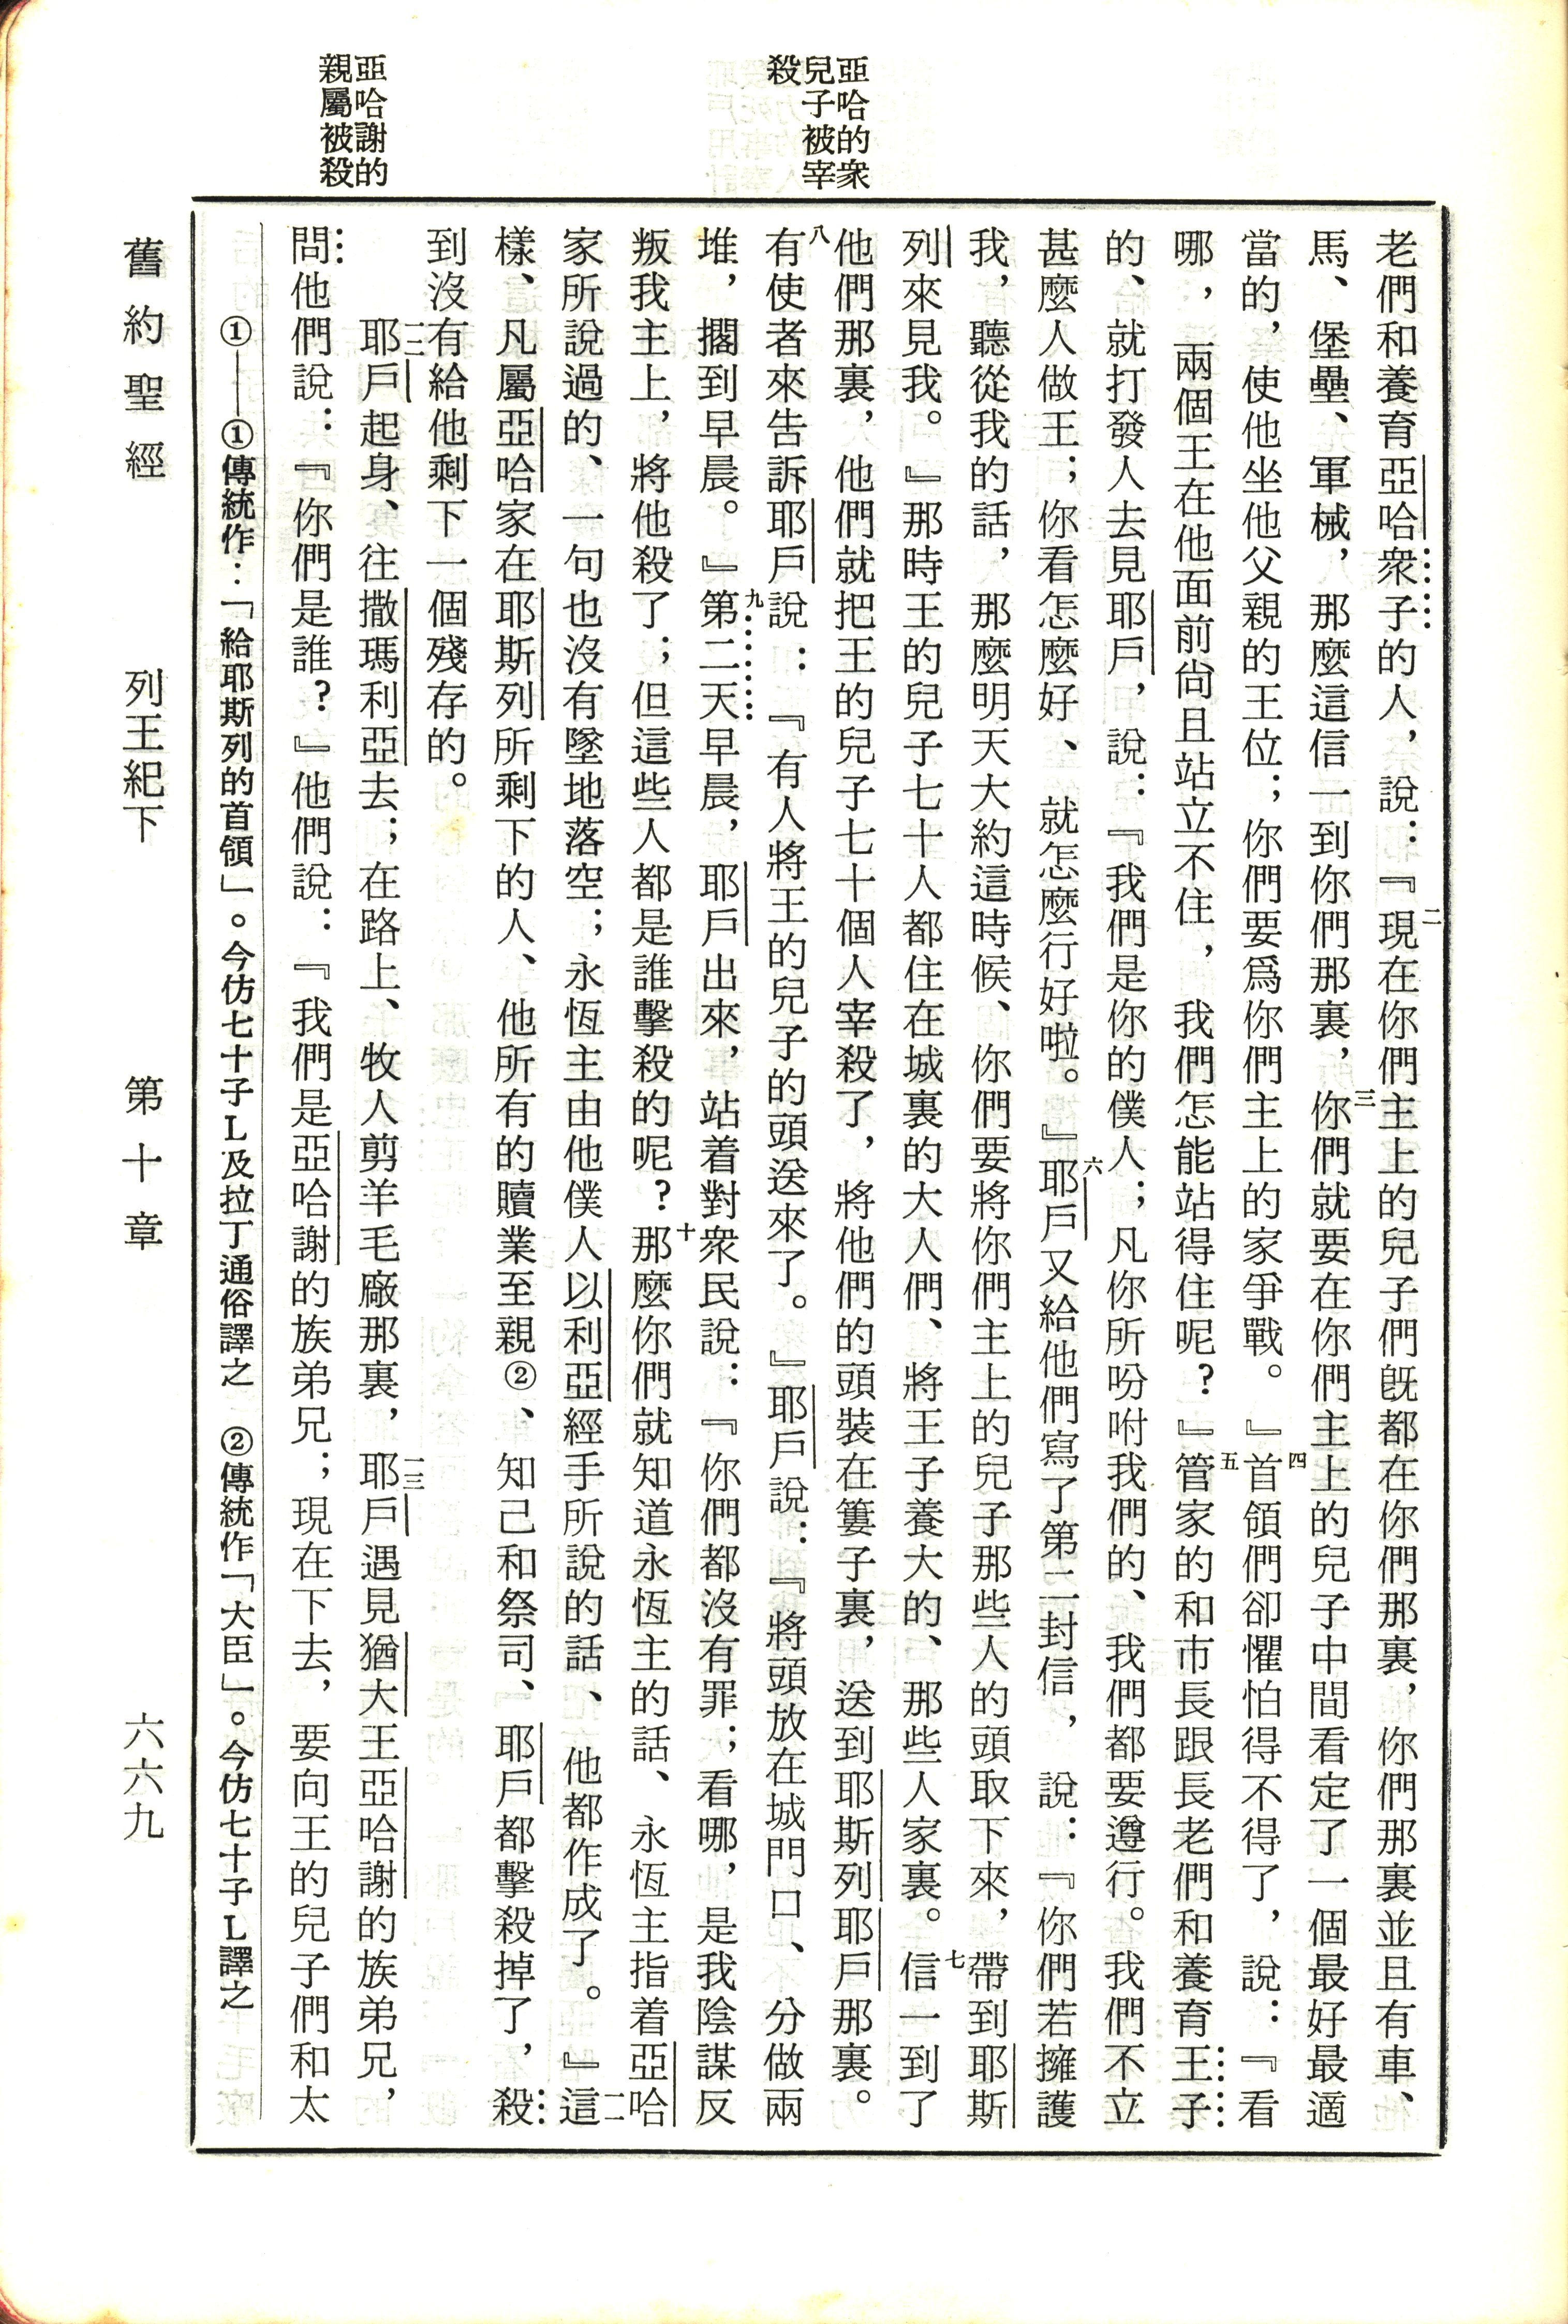 亞哈的衆
兒子被宰
殺
亞哈謝的
親屬被殺
老們和養育亞哈衆子的人，說：『二現在你們主上的兒子們旣都在你們那裏，你們那裏並且有車、
馬、堡壘、軍械，那麼這信一到你們那裏，三你們就要在你們主上的兒子中間看定了一個最好最適
當的，使他坐他父親的王位；你們要爲你們主上的家爭戰。』四首領們卻懼怕得不得了，說：『看
哪，兩個王在他面前尙且站立不住，我們怎能站得住呢？』五管家的和市長跟長老們和養育王子
的、就打發人去見耶戶，說：『我們是你的僕人；凡你所吩咐我們的、我們都要遵行。我們不立
甚麼人做王；你看怎麼好、就怎麼行好啦。』六耶戶又給他們寫了第二封信，說：『你們若擁護
我，聽從我的話，那麼明天大約這時候、你們要將你們主上的兒子那些人的頭取下來，帶到耶斯
列來見我。』那時王的兒子七十人都住在城裏的大人們、將王子養大的、那些人家裏。七信一到了
他們那裏，他們就把王的兒子七十個人宰殺了，將他們的頭裝在簍子裏，送到耶斯列耶戶那裏。
八有使者來告訴耶戶說：『有人將王的兒子的頭送來了。』耶戶說：『將頭放在城門口、分做兩
堆，擱到早晨。』九第二天早晨，耶戶出來，站着對衆民說：『你們都沒有罪；看哪，是我陰謀反
叛我主上，將他殺了；但這些人都是誰擊殺的呢？十那麼你們就知道永恆主的話、永恆主指着亞哈
家所說過的、一句也沒有墜地落空；永恆主由他僕人以利亞經手所說的話、他都作成了。』一一這
樣、凡屬亞哈家在耶斯列所剩下的人、他所有的贖業至親②、知己和祭司、耶戶都擊殺掉了，殺
到沒有給他剩下一個殘存的。
一二耶戶起身、往撒瑪利亞去；在路上、牧人剪羊毛廠那裏，一三耶戶遇見猶大王亞哈謝的族弟兄，
問他們說：『你們是誰？』他們說：『我們是亞哈謝的族弟兄；現在下去，要向王的兒子們和太
①——①傳統作：「給耶斯列的首領」。今仿七十子L及拉丁通俗譯之　②傳統作「大臣」。今仿七十子L譯之
舊約聖經　列王紀下　第十章　六六九